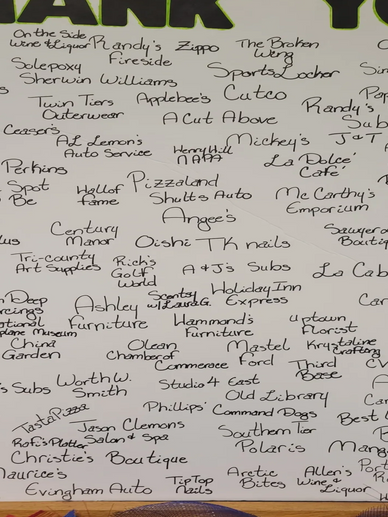 THANK YOU
On the Side
Wine & Liquor Randy's Zippo The Broken
Wing
Solepoxy Fireside
Sherwin Williams Sports Locker
Twin Tiers
Outerwear Applebee's Cutco
A Cut Above Randy's
Sub
Ceaser's
AL Lemon's
Auto Service Henry Hill
NAPA Mickey's J & T
La Dolce'
Cafe'
Perkins
Spot
Be Hall of
fame Pizzaland
Shults Auto Mc Carthy's
Emporium
Angee's
Century
Manor Oishi TK nails
Tri-county
Art Supplies Rick's
Golf
World A & J's Subs La Cab
Holiday Inn
Express
Deep Ashley
Furniture Scentsy
w/ Laura G.
Hammond's
Furniture uptown
Florist
Museum
China
Garden Olean
Chamber of
Commerece Mastel
Ford Krystaline
Crafting
Third
Base
Subs Worth W.
Smith Studio 4 East
Old Library
Tasta Pizza Phillips' Command Dogs Best
Jason Clemons
Salon & Spa Southern Tier
Polaris
Christie's Boutique
Maurice's
Evingham Auto Tip Top
Nails Arctic
Bites Allen's
Wine &
Liquor